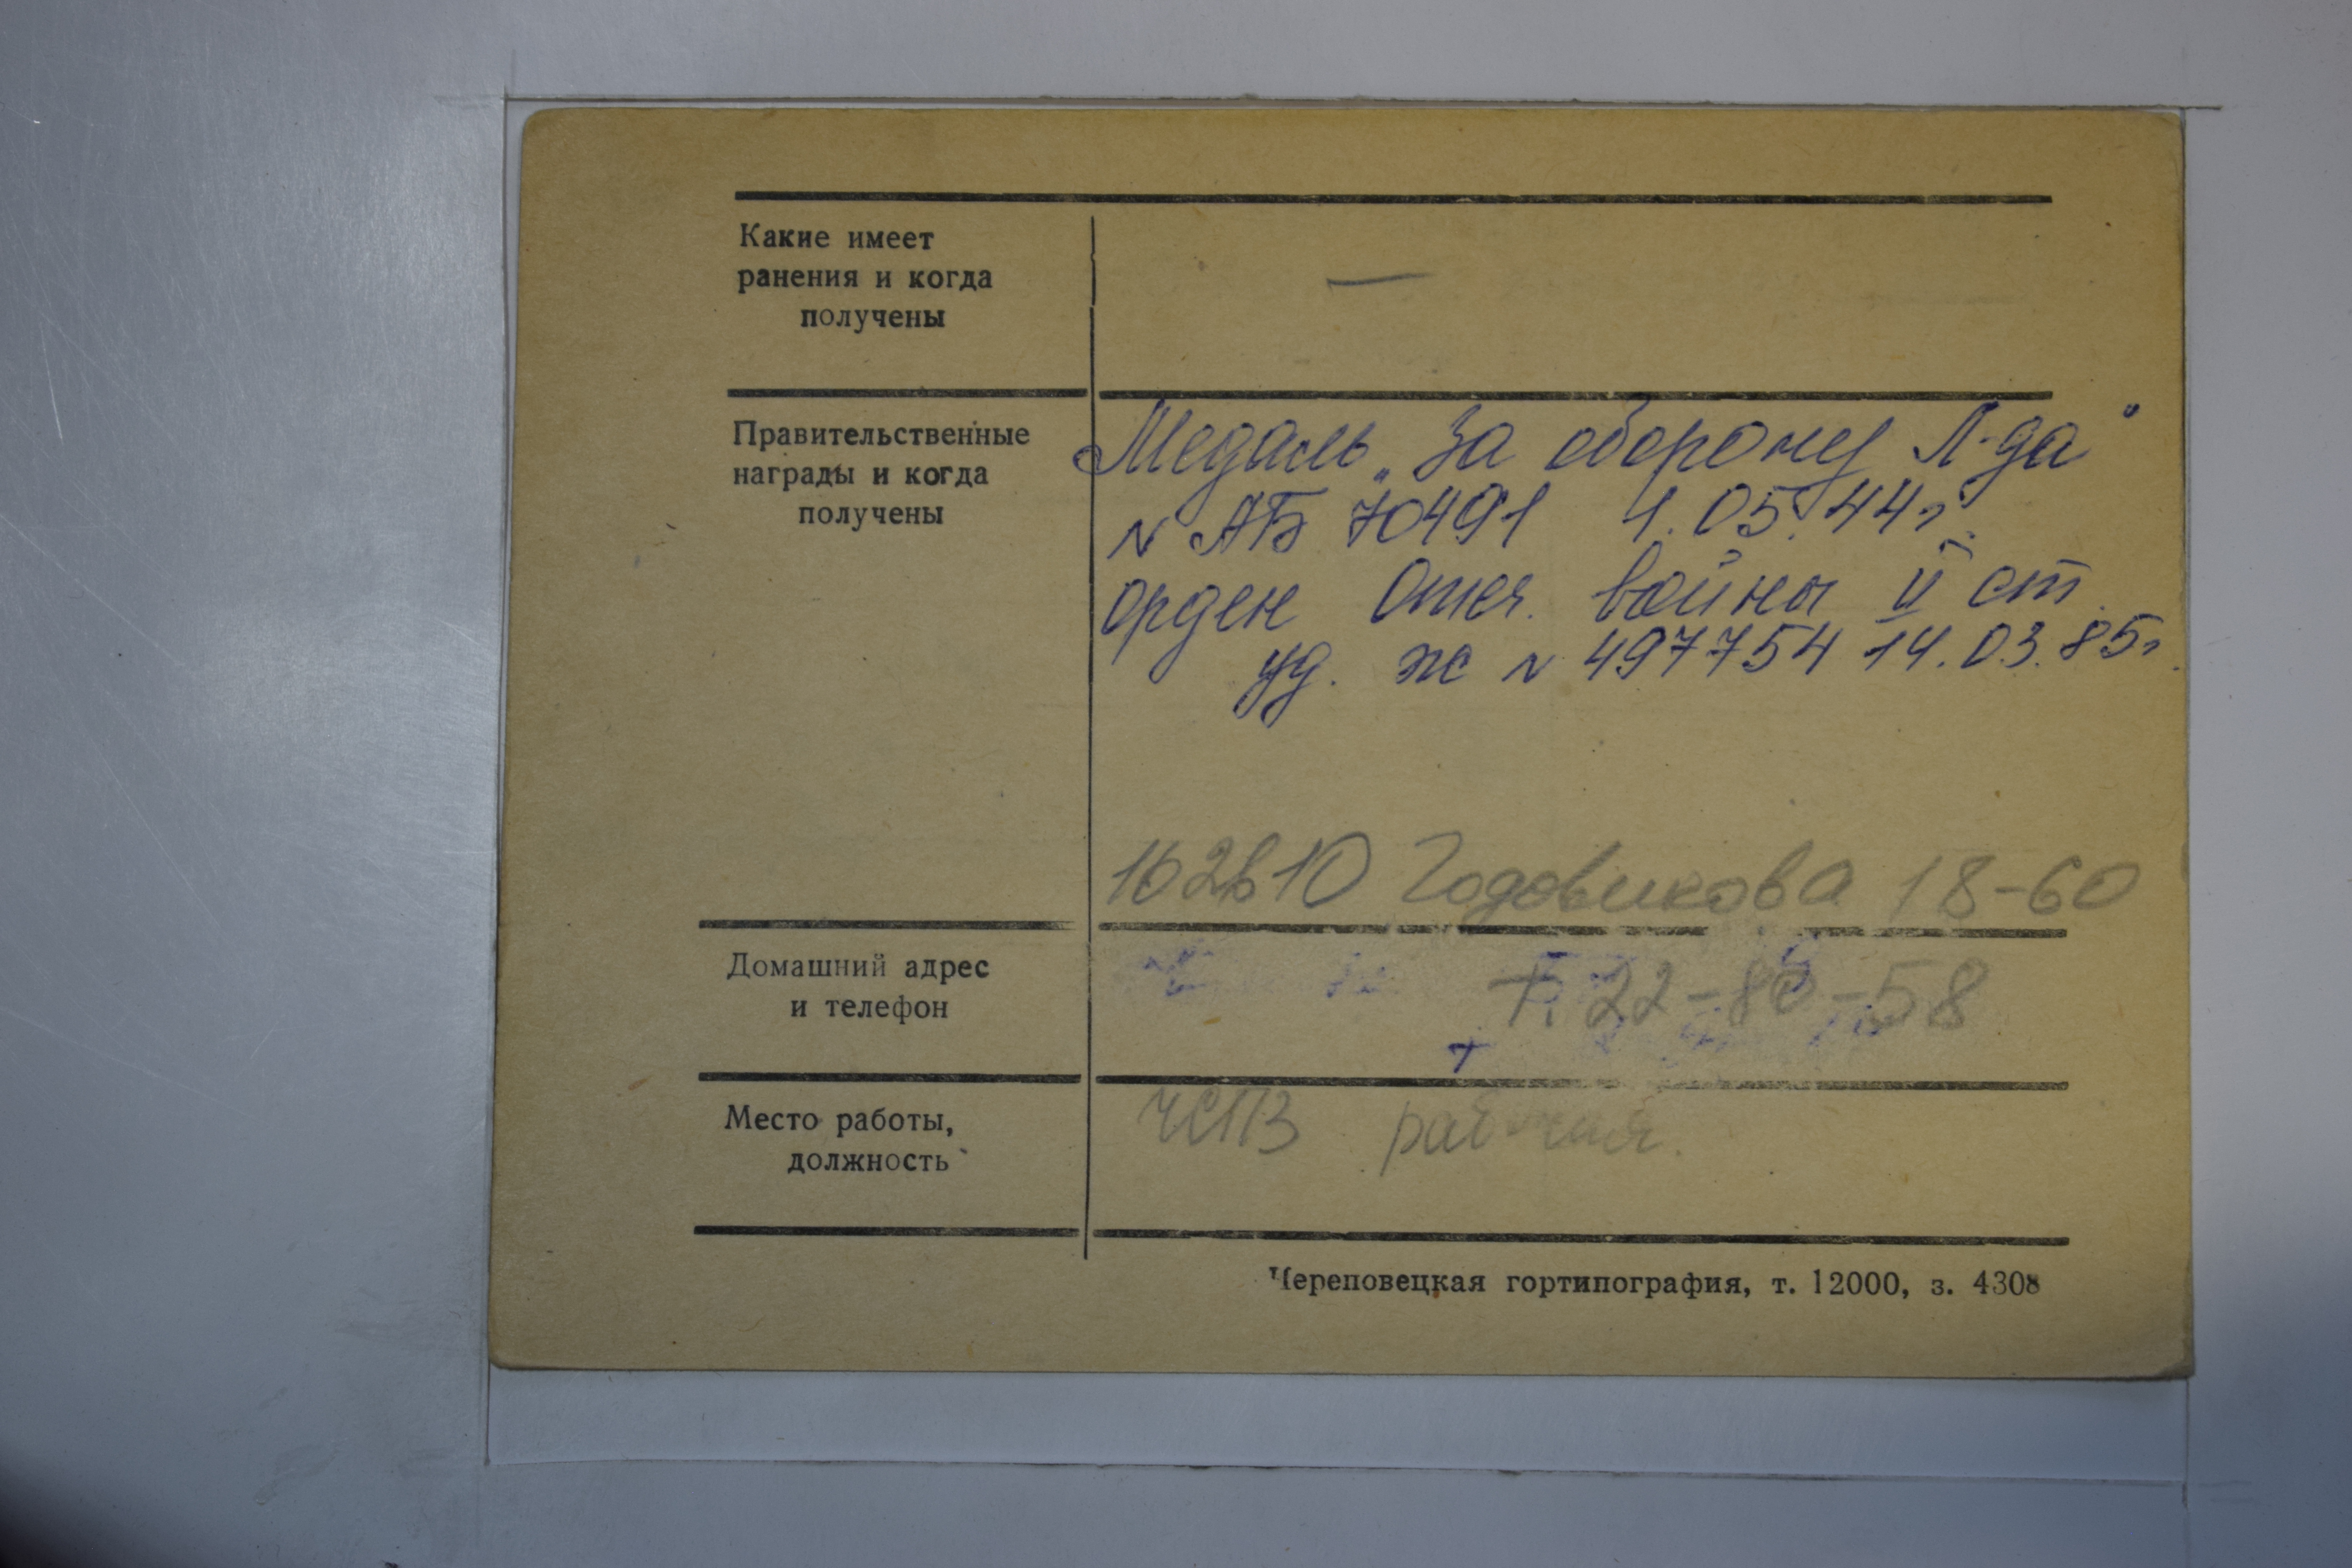 Какие имеет
ранения и когда
получены
—
Правительственные
награды и когда
получены
Медаль „За оборону Л-да"
N АБ 70491 1.05.44г.
орден Отеч. войны II ст.
уд. Ж N 497754 14.03.85г.
Годовикова 18-60
Домашний адрес
и телефон
Т. 22-80-58
т
Место работы,
должность
ЧСПЗ
Череповецкая гортипография, т. 12000, з. 4308